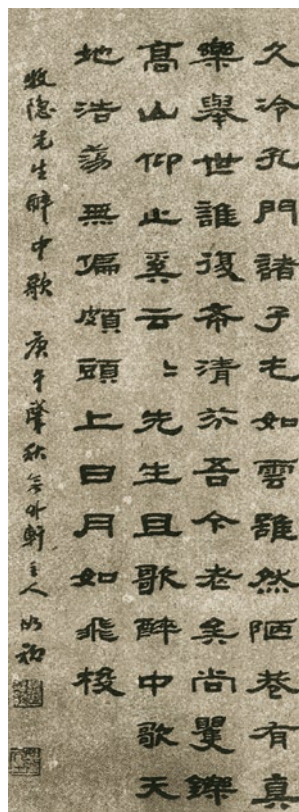 久冷孔門諸子屯如雲雖然陋巷有真
樂舉世誰復希清芬吾今老矣尚矍鑠
高山仰止奚云〻先生且歌醉中歌天
地浩蕩無偏頗頭上日月如飛梭
牧隱先生醉中歌 庚午肇秋 外軒主人